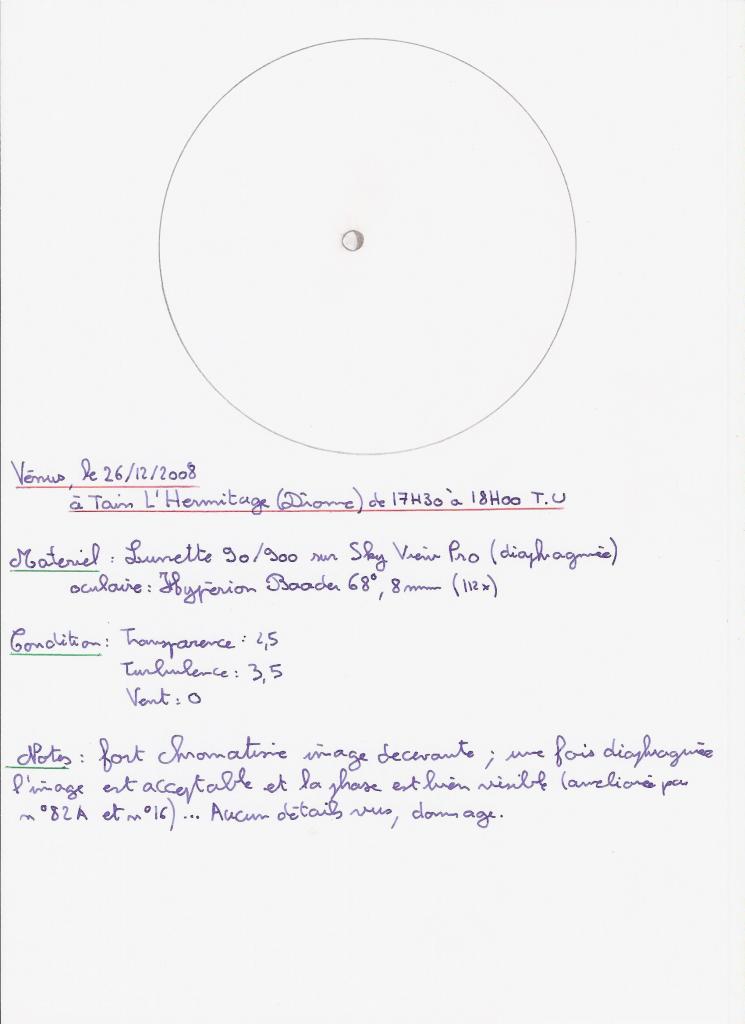 Vénus, le 26/12/2008
à Tain L'Hermitage (Drome) de 17H30 à 18H00 T.U
Materiel : Lunette 90/900 sur Sky View Pro (diaphragmée)
oculaire : Hypérion Baader 68°, 8mm (112x)
Condition : Transparence : 2,5
Turbulence : 3,5
Vent : 0
Notes : fort chromatisme image decevante ; une fois diaphragmée
l'image est acceptable et la phase est bien visible (améliorée par
n°82A et n°16) ... Aucun détails vus, dommage.